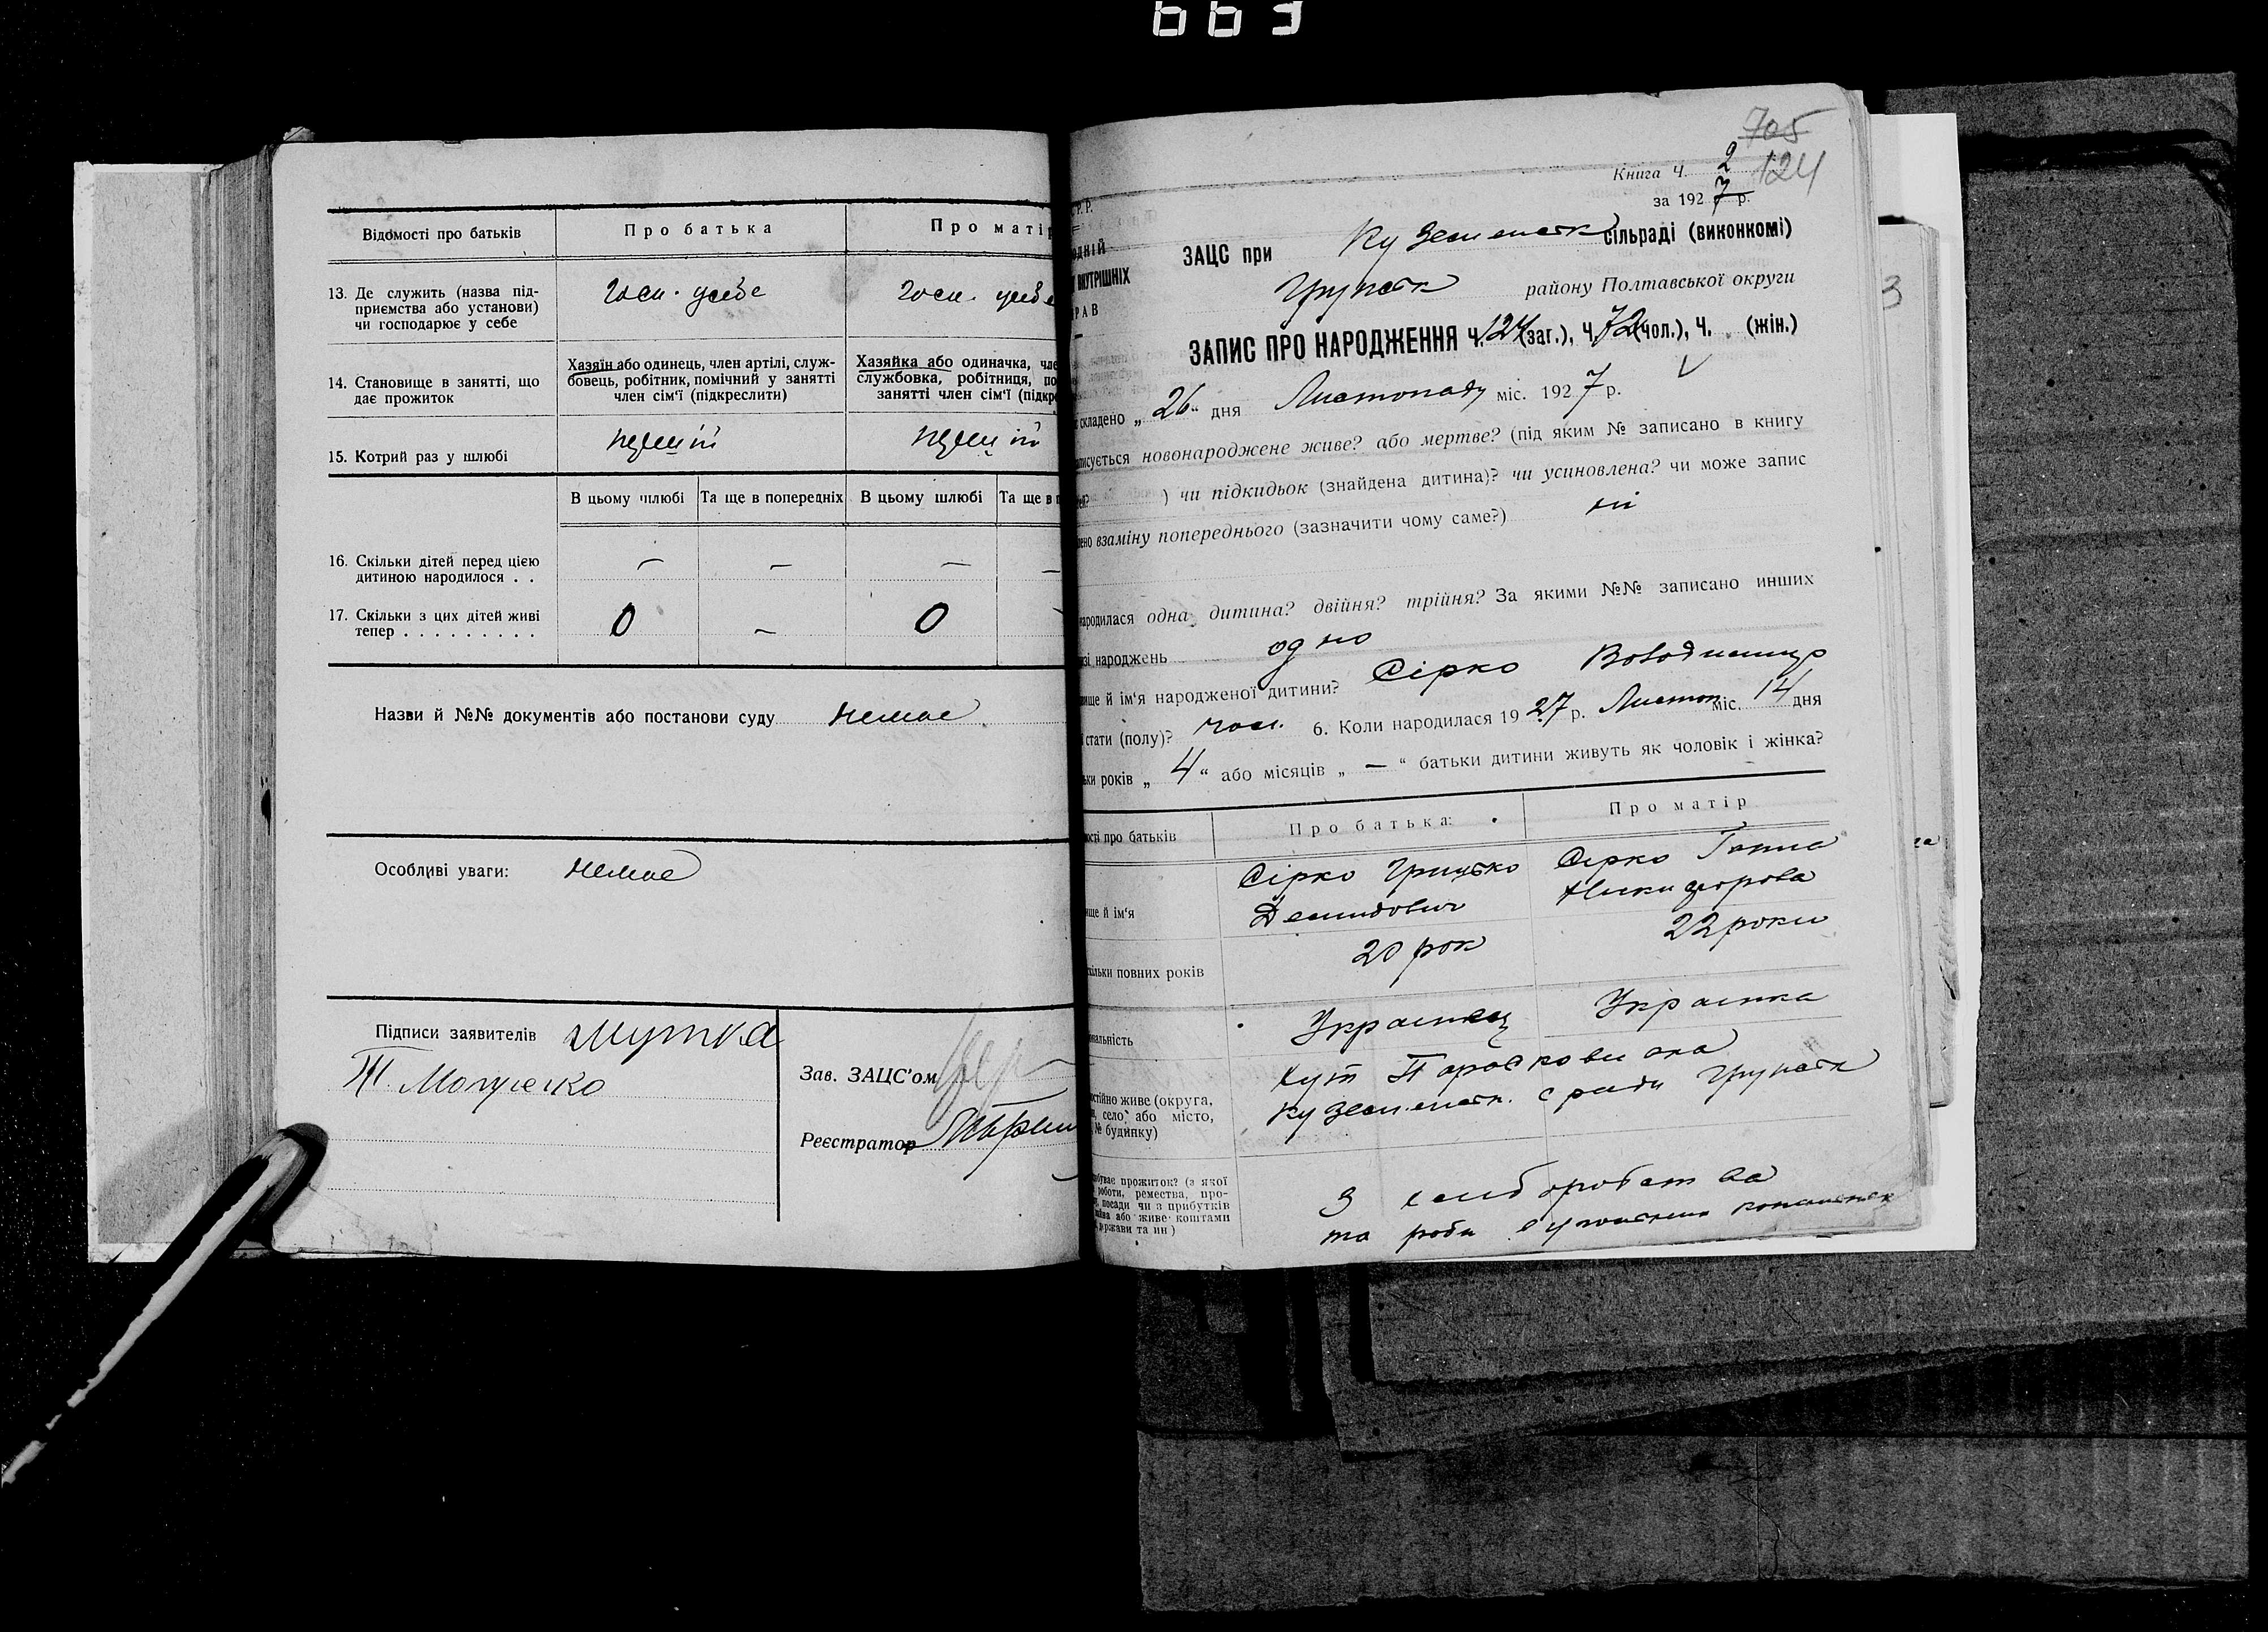 663
Відомості про батьків
Про батька
Про матір
13. Де служить (назва під-
приємства або установи)
чи господарює у себе
Госп. у себе
Госп. у себе
14. Становище в занятті, що
дає прожиток
Хазяїн або одинець, член артілі, служ-
бовець, робітник, помічний у занятті
член сім'ї (підкреслити)
Хазяйка або одиначка, чле
службовка, робітниця, по
занятті член сім'ї (підкре
15. Котрий раз у шлюбі
перший
перший
В цьому шлюбі
Та ще в попередніх
В цьому шлюбі
Та ще в п
16. Скільки дітей перед цією
дитиною народилося . .
— — — —
17. Скільки з цих дітей живі
тепер . . . . . . . . .
0 — 0
Назви й №№ документів або постанови суду немає
Особливі уваги: немає
Підписи заявителів
Зав. ЗАЦС'ом
Реєстратор
705
Книга Ч. 2 124
за 1927 р.
Р. Р.
ВНУТРІШНІХ
РАВ
ЗАЦС при Куземенськ сільраді (виконкомі)
Грунськ району Полтавської округи
ЗАПИС ПРО НАРОДЖЕННЯ Ч. 124 (заг.), Ч. 72 (чол.), Ч. (жін.)
складено „26" дня Листопаду міс. 1927 р.
писується новонароджене живе? або мертве? (під яким № записано в книгу
) чи підкидьок (знайдена дитина)? чи усиновлена? чи може запис
взаміну попереднього (зазначити чому саме?) ні
народилася одна дитина? двійня? трійня? За якими №№ записано инших
народжень одно
ще й ім'я народженої дитини? Сірко Володимир
стати (полу)? чол. 6. Коли народилася 1927 р. Листоп міс. 14 дня
років „4" або місяців „—" батьки дитини живуть як чоловік і жінка?
про батьків
Про батька:
Про матір
ще й ім'я
Сірко Грицько
Демидович
Сірко Ганна
Никифорова
повних років
20 рок
22 роки
Українець
Українка
стійно живе (округа,
село, або місто,
№ будинку)
хут
Куземенськ. с ради Грунськ
прожиток? (з якої
роботи, ремества, про-
посади чи з прибутків
або живе коштами
держави та ин)
З хліборобства
та роби